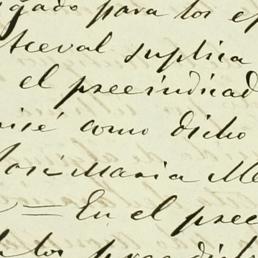 gado para los ef
tceval suplica
el preeindicad
isé como dicho
José Maria Me
= En el pree
los